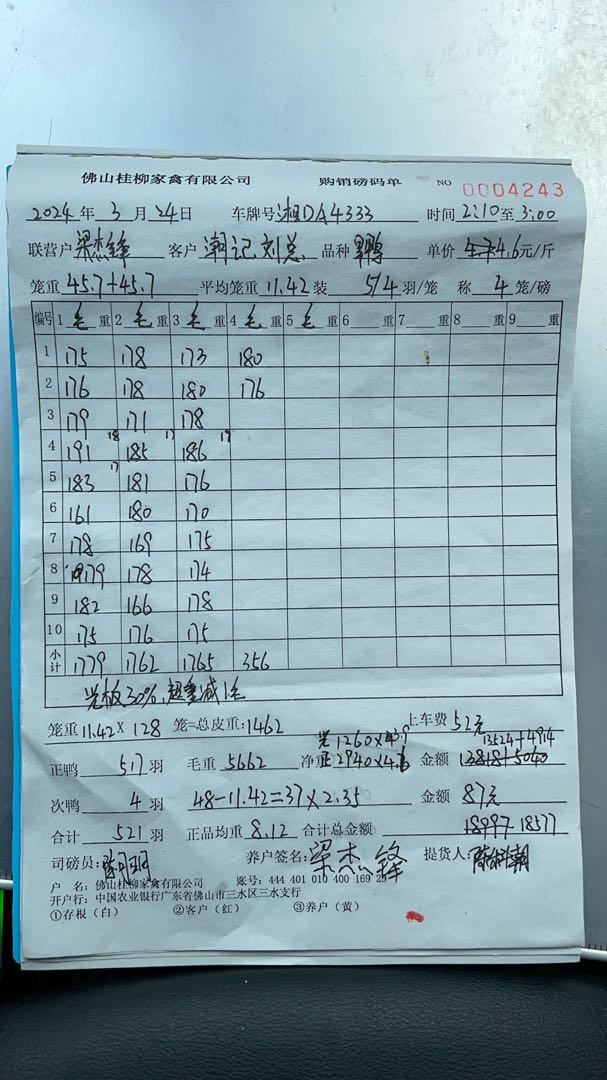 佛山桂柳家禽有限公司 购销磅码单 NO 0004243
2024年3月24日 车牌号湘DA4333 时间2:10至3:00
联营户梁杰锋 客户潮记刘总 品种 单价4.6元/斤
笼重45.7+45.7 平均笼重11.42装5/4羽/笼 称4笼/磅
编号 1毛重 2毛重 3毛重 4毛重 5毛重 6重 7重 8重 9重
1 175 178 173 180
2 176 178 180 176
3 179 171 178
4 191 18 185 17 186 19
5 183 17 181 176
6 161 180 170
7 178 169 175
8 179 178 174
9 182 166 178
10 175 176 175
小计 1779 1762 1765 356
光板30%,超重减1毛
笼重11.42×128笼=总皮重:1462 上车费52元
光1260×3.9 13524+4914
正鸭517羽 毛重5662 净重正2940×4.6 金额13818+5040
次鸭4羽 48-11.42=37×2.35 金额87元
合计521羽 正品均重8.12 合计总金额18997 18577
司磅员: 养户签名:梁杰锋 提货人:
户 名:佛山桂柳家禽有限公司 账号:444 401 010 400 169 25
开户行:中国农业银行广东省佛山市三水区三水支行
①存根(白) ②客户(红) ③养户(黄)